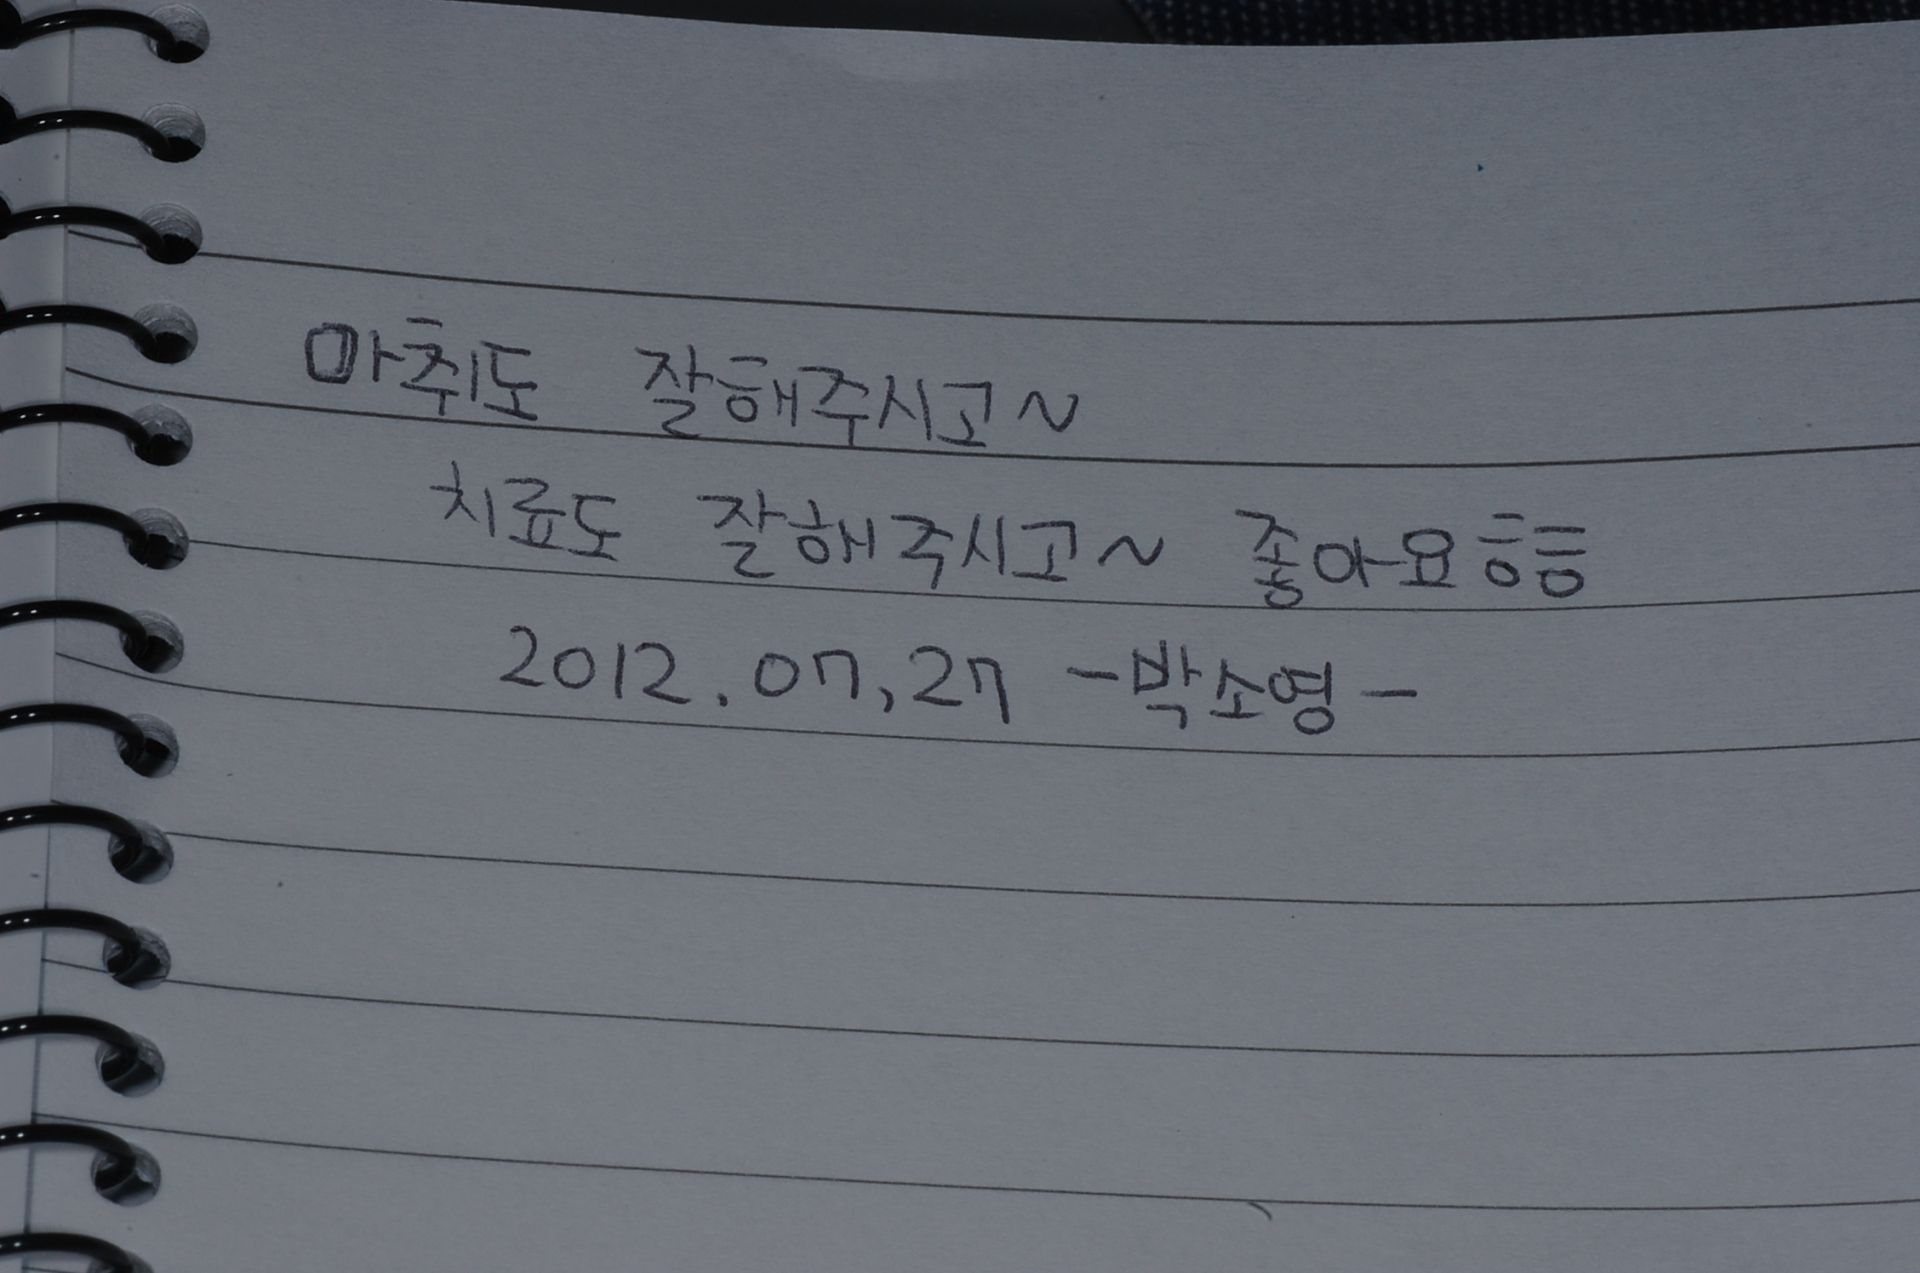 마취도 잘해주시고~
치료도 잘해주시고~ 좋아요ㅎㅎ
2012.07,27 -박소영-